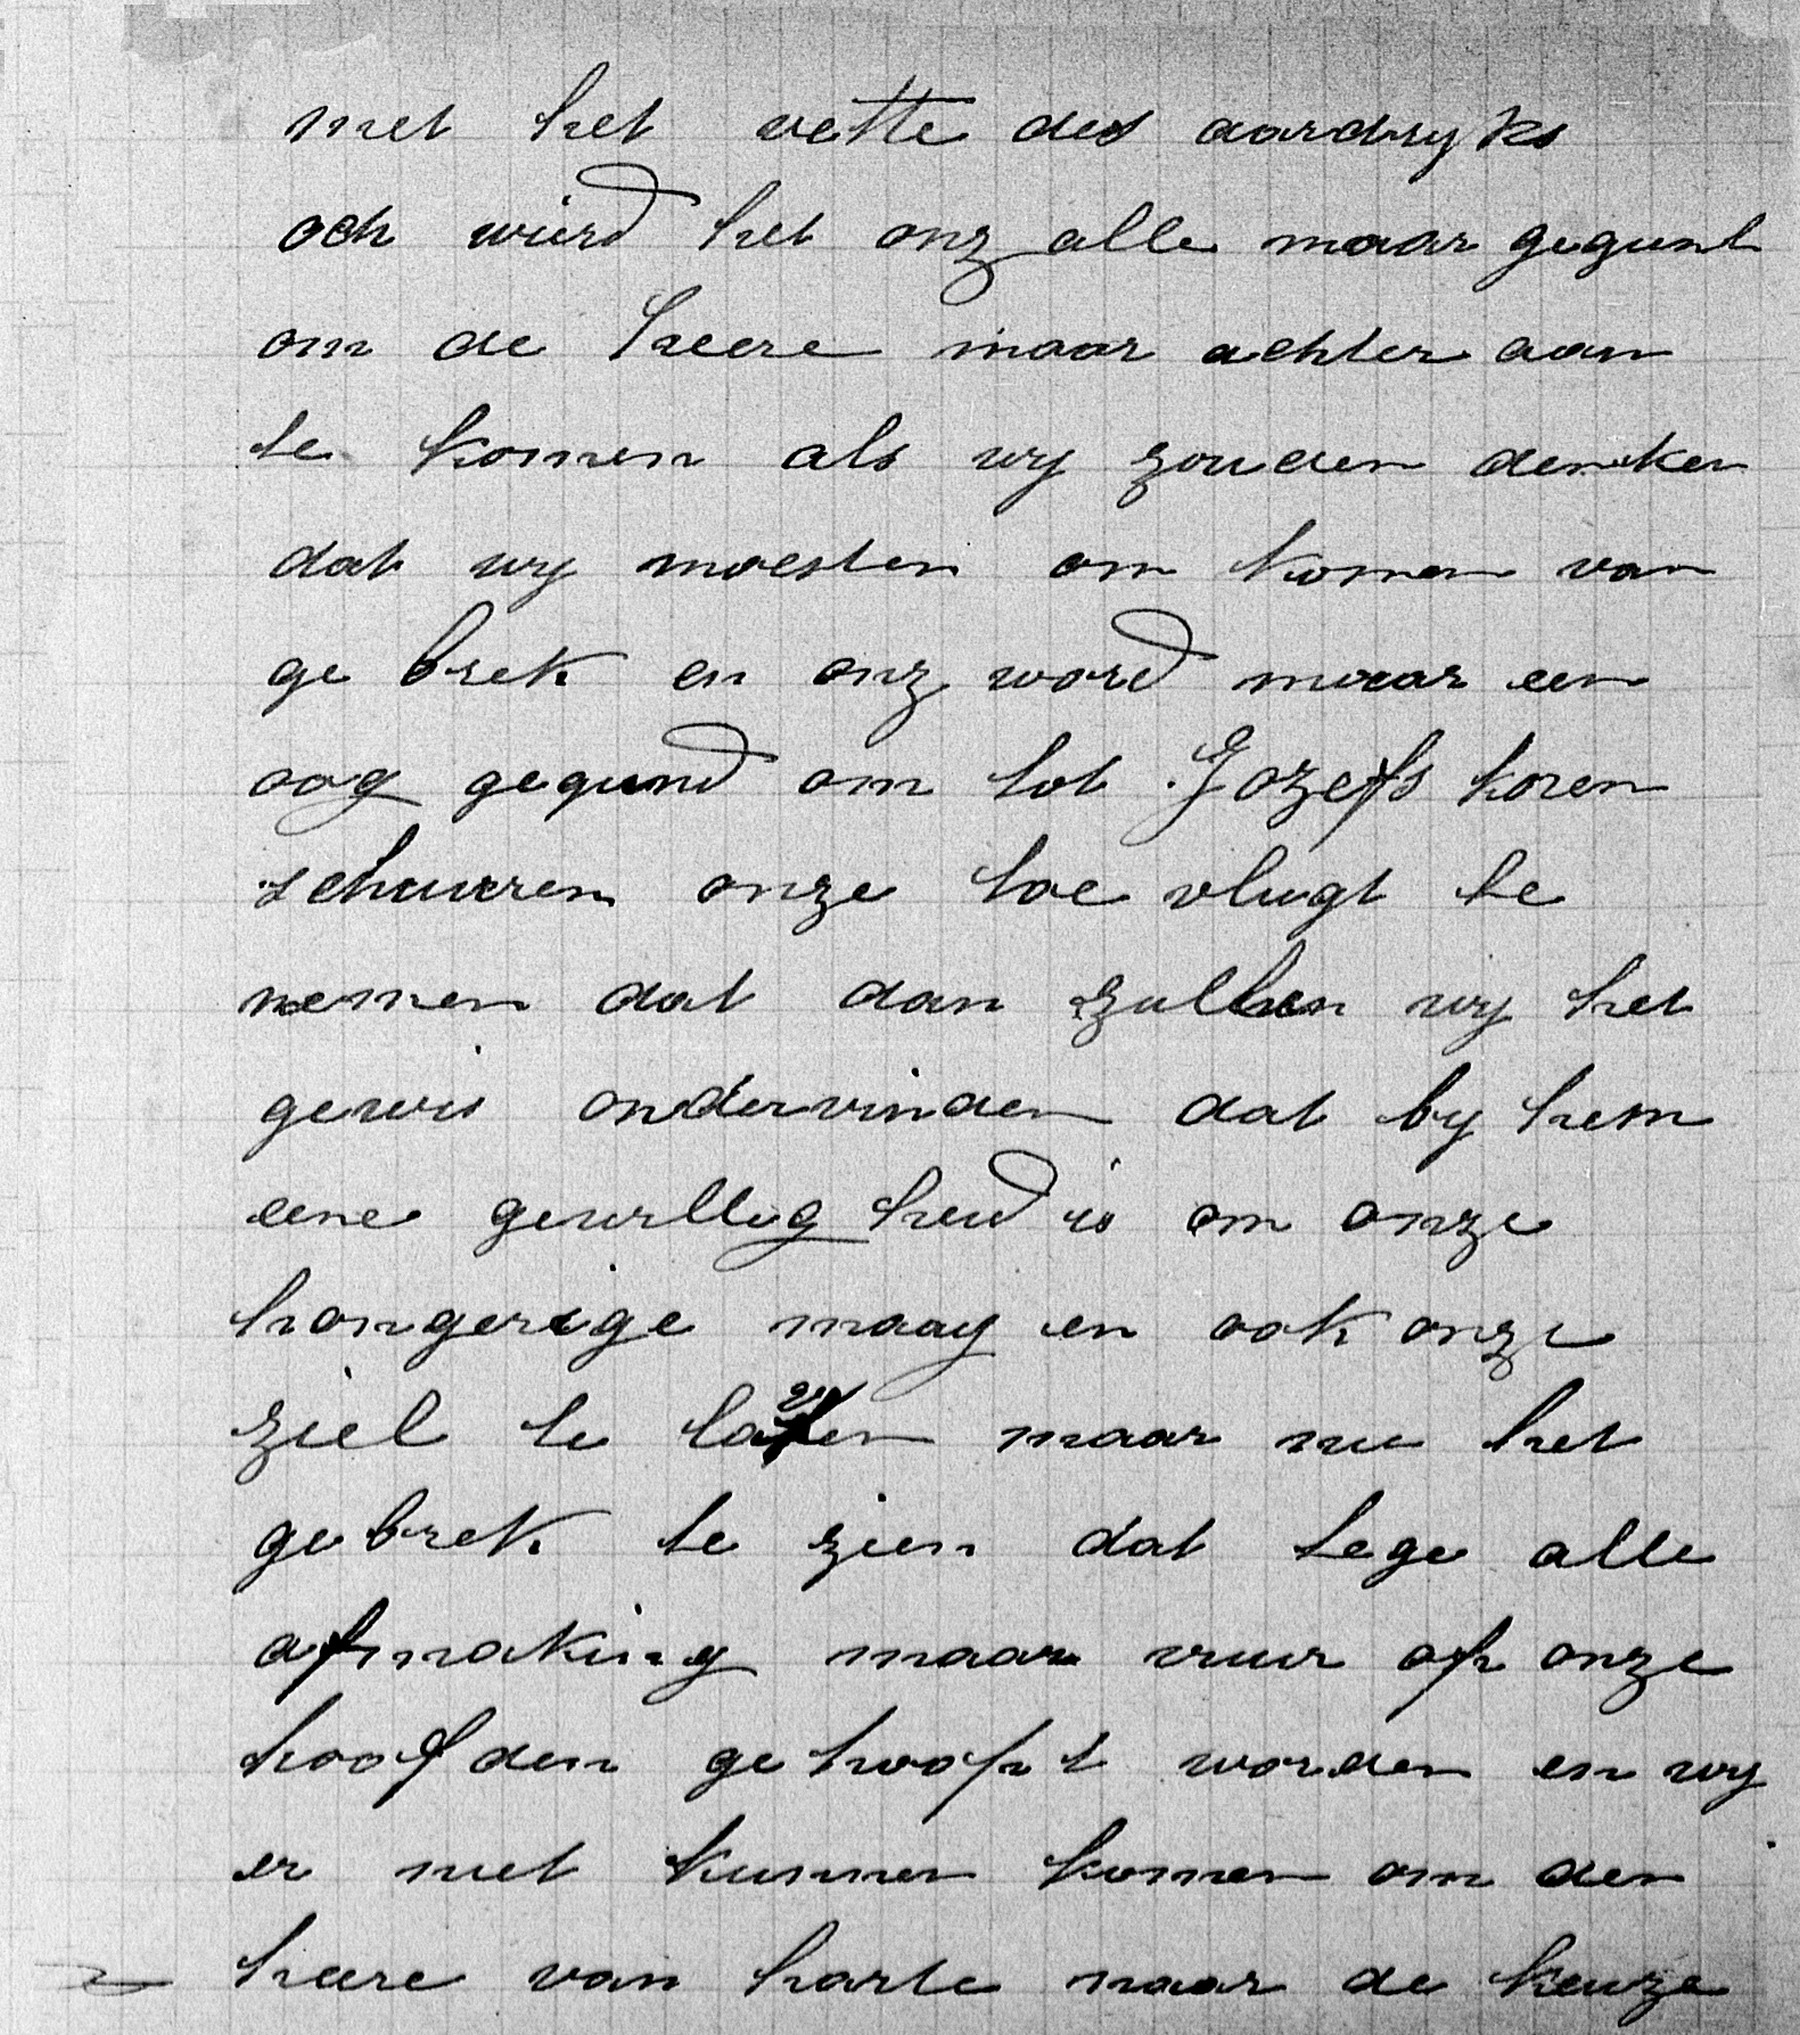 met het vette des aardryks
och wierd het onz alle maar gegunt
om de heere maar achter aan
te komen als wy zouden denken
dat wy moesten om komen van
ge brek en onz word maar een
oog gegund om tot Jozefs koren
schuuren onze toe vlugt te
nemen dat dan zullen wy het
gewis ondervinden dat by hem
eene gewillig heid is om onze
hongerige maag en ook onze
ziel te laven maar nu het
gebrek te zien dat tege alle
afmaking maar vuur op onze
hoofden ge hoopt worden en wy
er niet kunnen komen om den
heere van harte naar de keuze